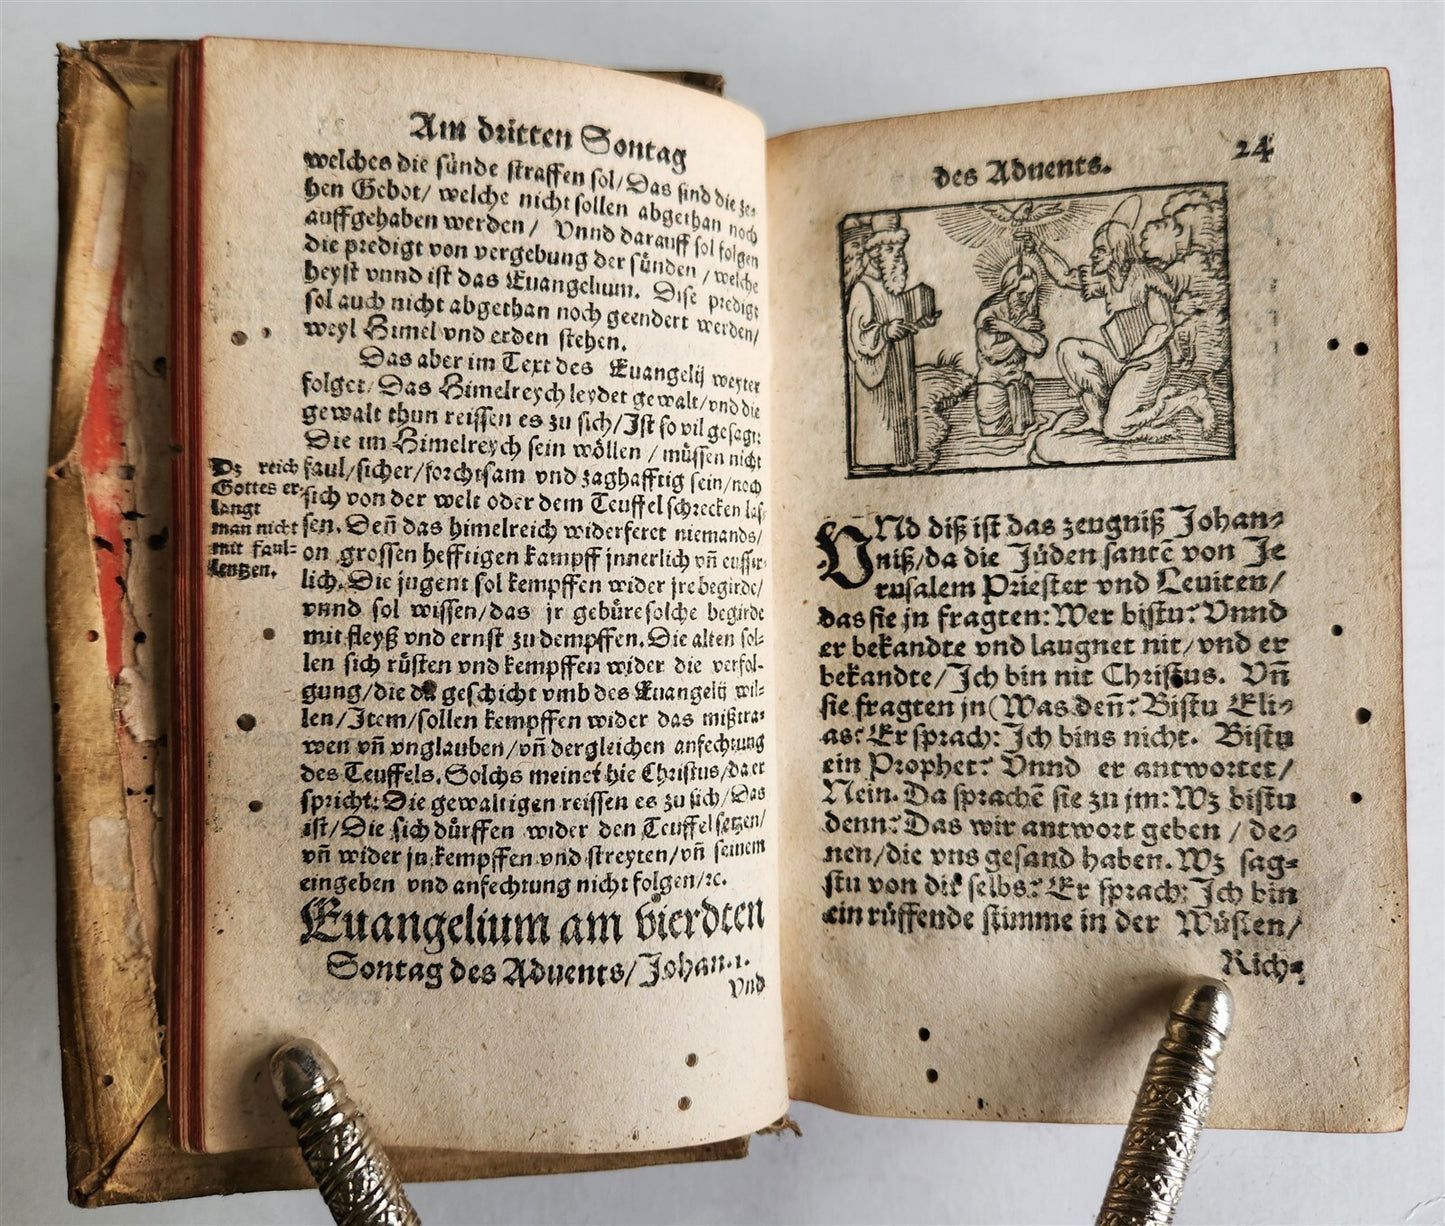 Am dritten Sontag
welches die sünde straffen sol/Das sind die ze⸗
hen Gebot/ welche nicht sollen abgethan noch
auffgehaben werden/ Vnnd darauff sol folgen
die predigt von vergebung der sünden/welche
heyst vnnd ist das Euangelium. Dise predigt
sol auch nicht abgethan noch geendert werden/
weyl Himel vnd erden stehen.
Das aber im Text des Euangelij weyter
folget/Das Himelreych leydet gewalt/vnd die
gewalt thun reissen es zu sich/Ist so vil gesagt:
Die im Himelreych sein wöllen/müssen nicht
faul/sicher/forchtsam vnd zaghafftig sein/noch
sich von der welt oder dem Teuffel schrecken las⸗
sen. Deñ das himelreich widerferet niemands/
on grossen hefftigen kampff jnnerlich vñ eusser⸗
lich. Die jugent sol kempffen wider jre begirde/
vnnd sol wissen/das jr gebüre solche begirde
mit fleyß vnd ernst zu dempffen. Die alten sol⸗
len sich rüsten vnd kempffen wider die verfol⸗
gung/die da geschicht vmb des Euangelij wil⸗
len/Item/sollen kempffen wider das mißtra⸗
wen vñ vnglauben/vñ dergleichen anfechtung
des Teuffels. Solchs meinet hie Christus/da er
spricht: Die gewaltigen reissen es zu sich/Das
ist/Die sich dürffen wider den Teuffel setzen/
vñ wider jn kempffen vnd streyten/vñ seinem
eingeben vnd anfechtung nicht folgen/ꝛc.
Dz reich
Gottes er⸗
langt
man nicht
mit faul⸗
lentzen.
Euangelium am vierdten
Sontag des Aduents/Johan.1.
Vnd
des Aduents.
24
VNd diß ist das zeugniß Johan⸗
niß/da die Jüden santē von Je
rusalem Priester vnd Leuiten/
das sie jn fragten: Wer bistu? Vnnd
er bekandte vnd laugnet nit/vnd er
bekandte/Ich bin nit Christus. Vñ
sie fragten jn(Was deñ? Bistu Eli⸗
as? Er sprach: Ich bins nicht. Bistu
ein Prophet? Vnnd er antwortet/
Nein. Da sprachē sie zu jm: Wz bistu
denn? Das wir antwort geben / de⸗
nen/die vns gesand haben. Wz sag⸗
stu von dir selbs? Er sprach: Ich bin
ein rüffende stimme in der Wüsten/
Rich⸗